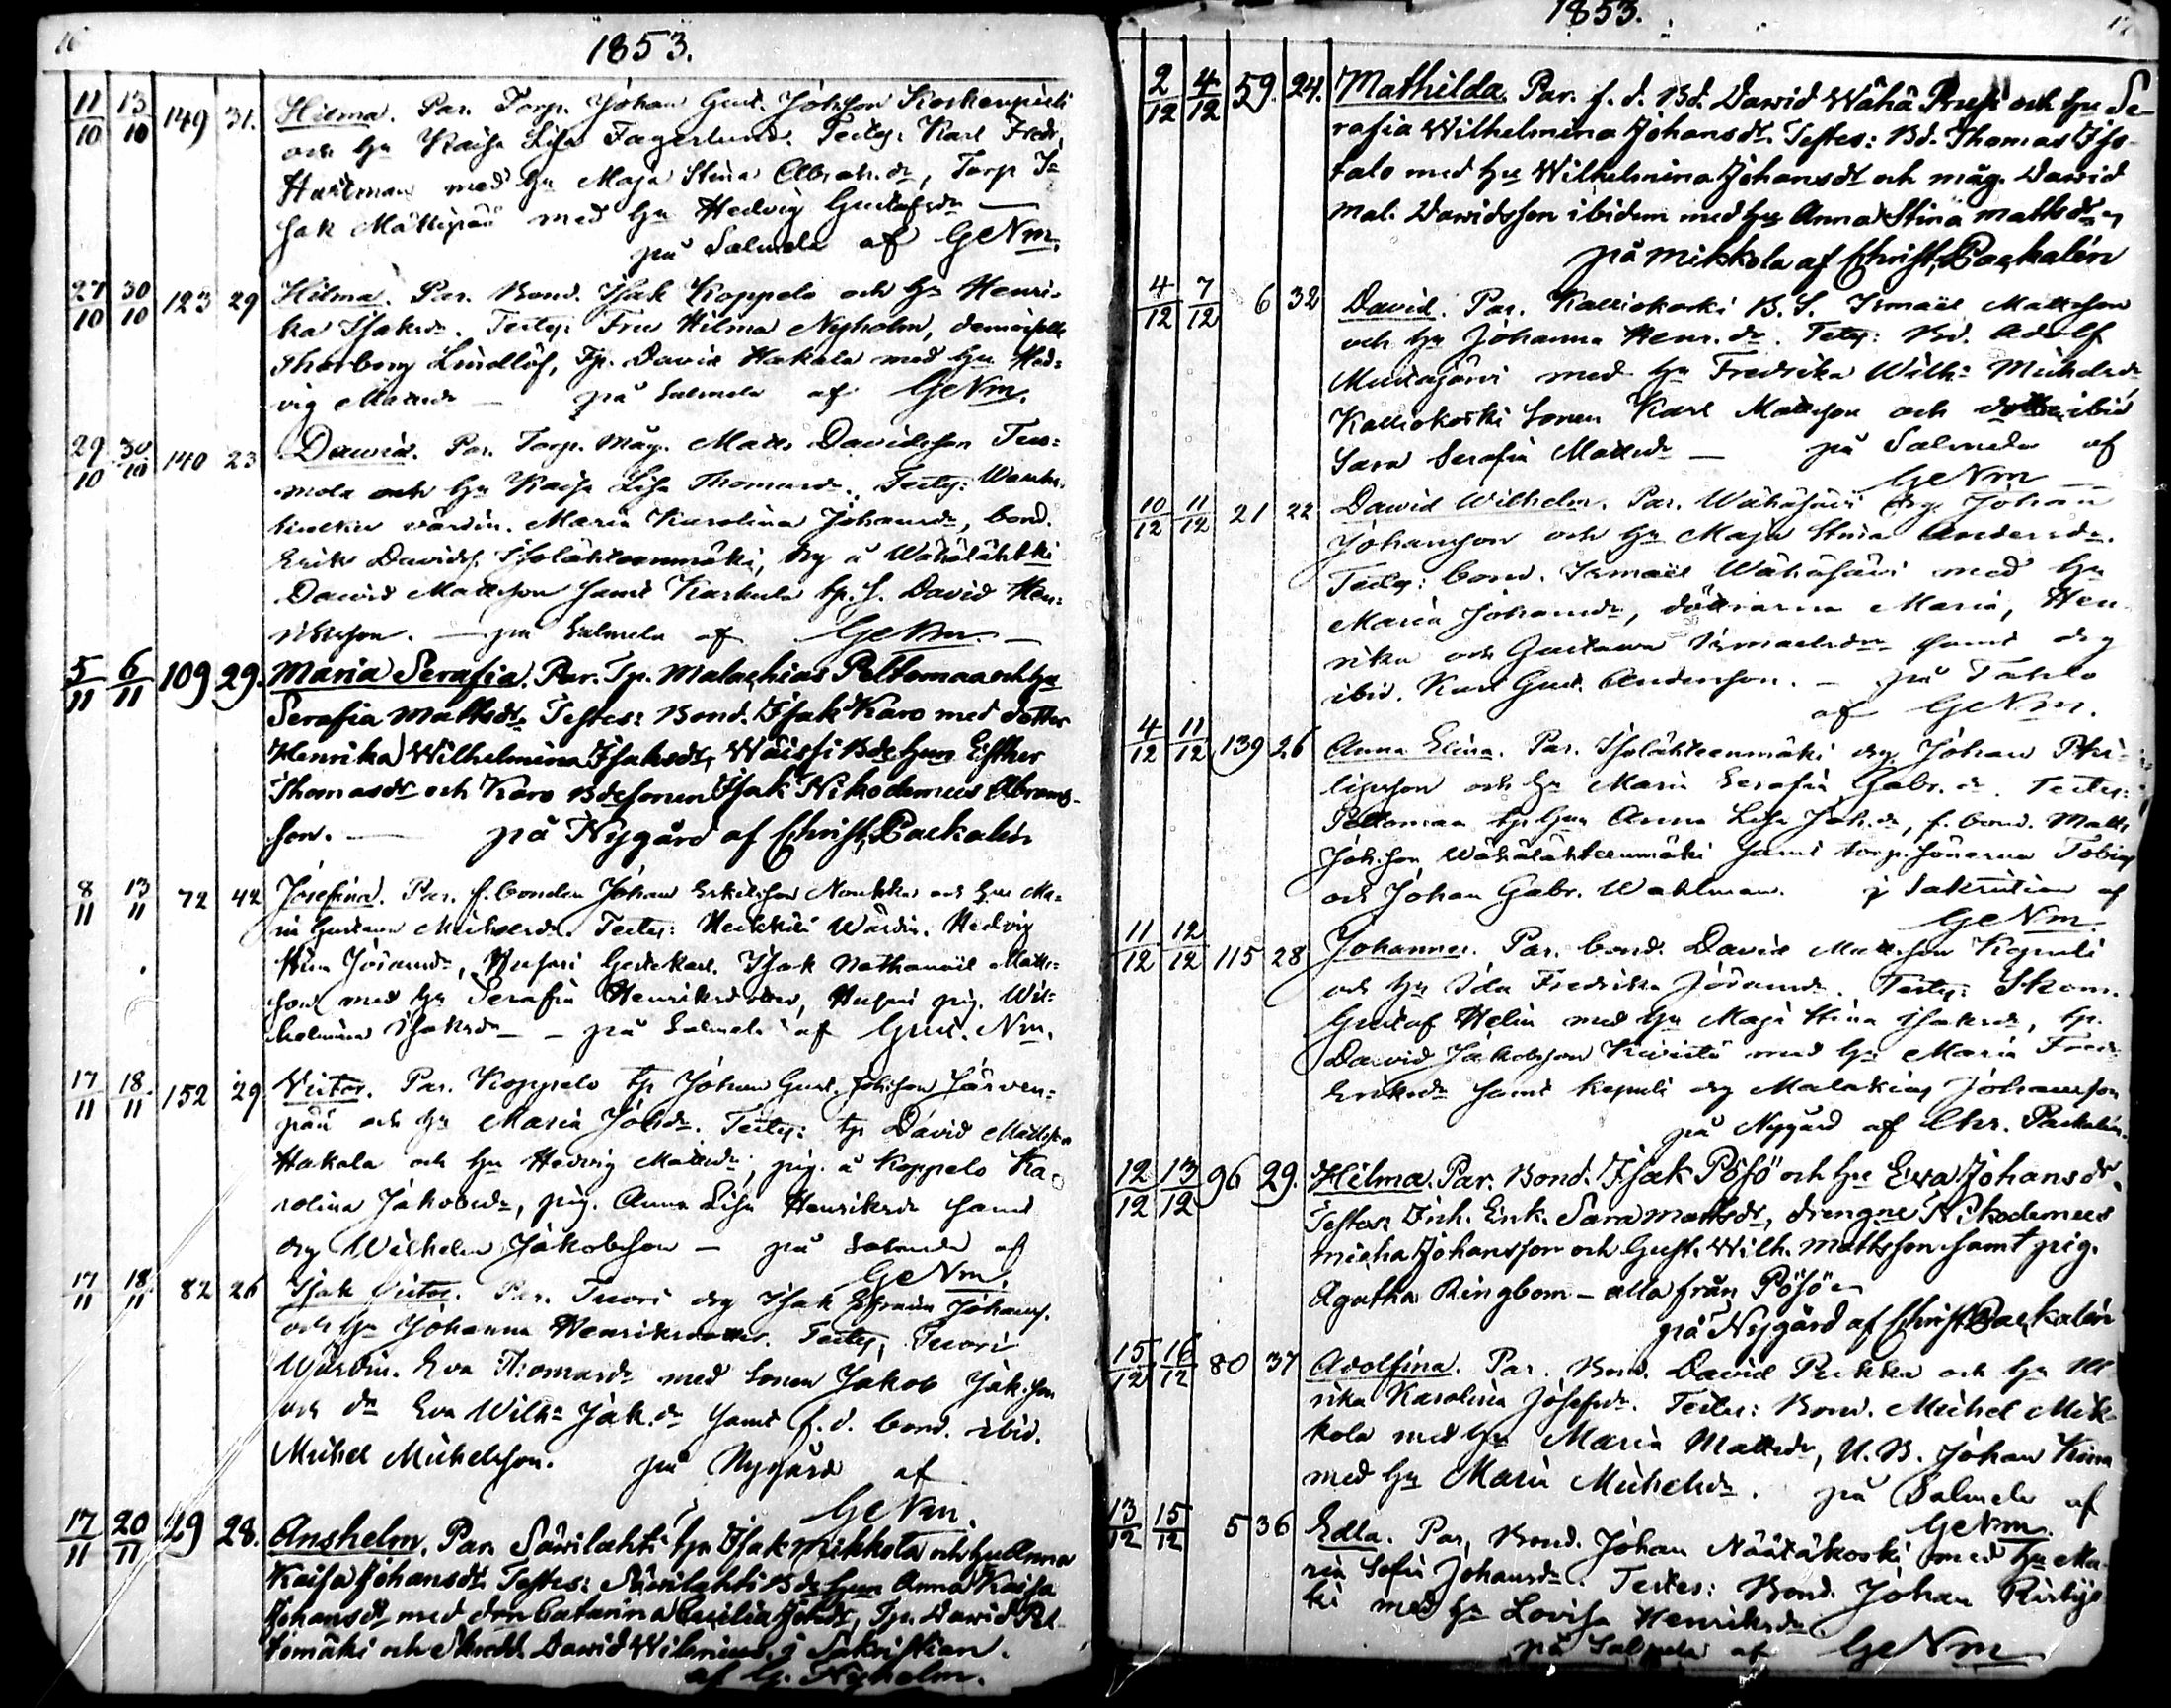 16
1853.
11/10 13/10 149 31. Hilma. Par. Torp. Johan Gust. Johsson Koskenpicti
och hu Kaisa Lisa Fagerlund. Testes: Karl Fredr.
Hartman med hu Maja Stina Abrah.dr, Torp I-
sak Mattipää med hu Hedvig Gustafsdr —
på Salmela af GeNm.
27/10 30/10 123 29 Hilma. Par. Bond. Isak Koppelo och hu Henri-
ka Isaksdr. Testes: Fru Hilma Nyholm, demoiselle
Thorborg Lindlöf, Tp. David Hakala med hu Hed-
vig Mattsdr — på Salmela af GeNm.
29/10 30/10 140 23 Dawid. Par. Torp. måg. Matts Davidsson Tuo-
mola och hu Kaisa Lisa Thomasdr. Testes:
värdin. Maria Karolina Johansdr, bond.
Erik Davids. Isolähteenmäki, drg å Wähälähtki
Dawid Mattsson samt Karkula tp. s. David Hen-
riksson. — på Salmela af GeNm. —
5/11 6/11 109 29. Maria Serafia. Par. Tp. Malachias Peltomaa och hu
Serafia Mattsdr. Testes: Bond. Isak Karo med dotter
Henrika Wilhelmina Isaksdr, Wäissi Bde hun Esther
Thomasdr och Karo Bdesonen Isak Nikodemus Abrams-
son. — på Nygård af Christ. Packalén
8/11 13/11 72 42 Josefina. Par. f. bonden Johan Erkilsson Noukka och hu Ma-
ria Gustava Michelsdr. Testes: Heikkilä Wärdin. Hedvig
Stina Jöransdr, Huhtari Isak Nathanaël Matts-
son med hu Serafia Henriksdotter, Huhtari pig. Wil-
helmina Isaksdr — på Salmela af Gust. Nm.
17/11 18/11 152 29 Victor. Par. Koppelo tp Johan Gust. Johsson Järven-
pää och hu Maria Johsdr. Testes: tp David Mattsson
Hakala och hu Hedvig Mattsdr, pig. å Koppelo Ka-
rolina Jakobsdr, pig. Anna Lisa Henriksdr samt
drg Wilhelm Jakobsson — på Salmela af
GeNm.
17/11 18/11 82 26 Isak Victor. Par. Tuori drg Isak Efraim Johans.
och hu Johanna Henriksdotter. Testes, Tuori
Wärdin. Eva Thomasdr med sonen Jakob Jak.son
och dr Eva Wilh:a Jak.dr samt f. d. bond. ibid.
Michel Michelsson. på Nygård af
GeNm.
17/11 20/11 29 28. Anshelm. Par. Säwilahti hu Isak Mikkola och hu Anna
Kaisa Johansdr. Testes: Säwilahti Bde hun Anna Kaisa
Johansdr med dn Catarina Cecilia Johdr, Tp. Dawid Pel-
tomäki och Skrädd. Dawid Wilenius, i Sakristian.
af G. Nyholm.
1853.
17
2/12 4/12 59. 24. Mathilda. Par. f. d. Bd. Dawid Wähä Prusi och hu Se-
rafia Wilhelmina Johansdr. Testes: Bd. Thomas Iso-
talo med hu Wilhelmina Johansdr och måg. Dawid
Mal. Dawidsson ibidem med hu Anna Stina Mattsdr,
på Mikkola af Christ. Packalén
4/12 7/12 6 32 David. Par. Kalliokoski B. S. Ismaël Mattsson
och hu Johanna Henr.dr. Testes: Bd. Adolf
Mustajärvi med hu Fredrika Wilh:a Michelsdr
Kalliokoski Sonen Karl Mattsson och dotter ibid
Sara Serafia Mattsdr — på Salmela af
GeNm —
10/12 11/12 21 22 Dawid Wilhelm. Par. Wähäsäri drg Johan
Johansson och hu Maja Stina Andersdr.
Testes: bond. Ismaël Wähäsäri med hu
Maria Johansdr, döttrarna Maria, Hen-
rika och Gustava Ismaelsdr samt drg
ibid. Karl Gust. Andersson. — på Tahlo
af GeNm.
4/12 11/12 139 26 Anna Elina. Par. Isolähteenmäki drg Johan Phi-
lipsson och hu Maria Serafia Gabr.dr. Testes:
Peltomaa tp hun Anna Lisa Joh.dr, f. bond. Matts
Joh.son Wähälähteenmäki samt torp. sönerna Tobias
och Johan Gabr. Wahlman. i Sakristian af
GeNm.
11/12 12/12 115 28 Johannes. Par. bond. David Mattsson Kepuli
och hu Ida Fredrika Jöransdr. Testes: Skom.
Gustaf Helin med hu Maja Stina Isaksdr, tp.
David Jakobsson Kivistö med hu Maria Fredr.
Eriksdr samt Kepuli drg Malakias Johansson
på Nygård af Chr. Packalén.
12/12 13/12 96 29. Hilma. Par. Bond. Isak Pösö och hu Ewa Johansdr.
Testes: Inh. Enk. Sara Mattsdr, drengne Nikodemus
Micha Johansson och Gust. Wilh. Mattsson samt pig.
Agatha Ringbom — alla från Pösö —
på Nygård af Christ. Packalén
15/12 16/12 80 37 Adolfina. Par. Bond. David Pukka och hu Ul-
rika Karolina Josefsdr. Testes: Bond. Michel Mik-
kola med hu Maria Mattsdr, U.B. Johan Knia
med hu Maria Michelsdr. på Salmela af
GeNm.
13/12 15/12 5 36 Edla. Par, Bond. Johan Näätäkoski med hu Ma-
ria Sofia Johansdr. Testes: Bond. Johan
med hu Lovisa Henriksdr
på Salmela af GeNm